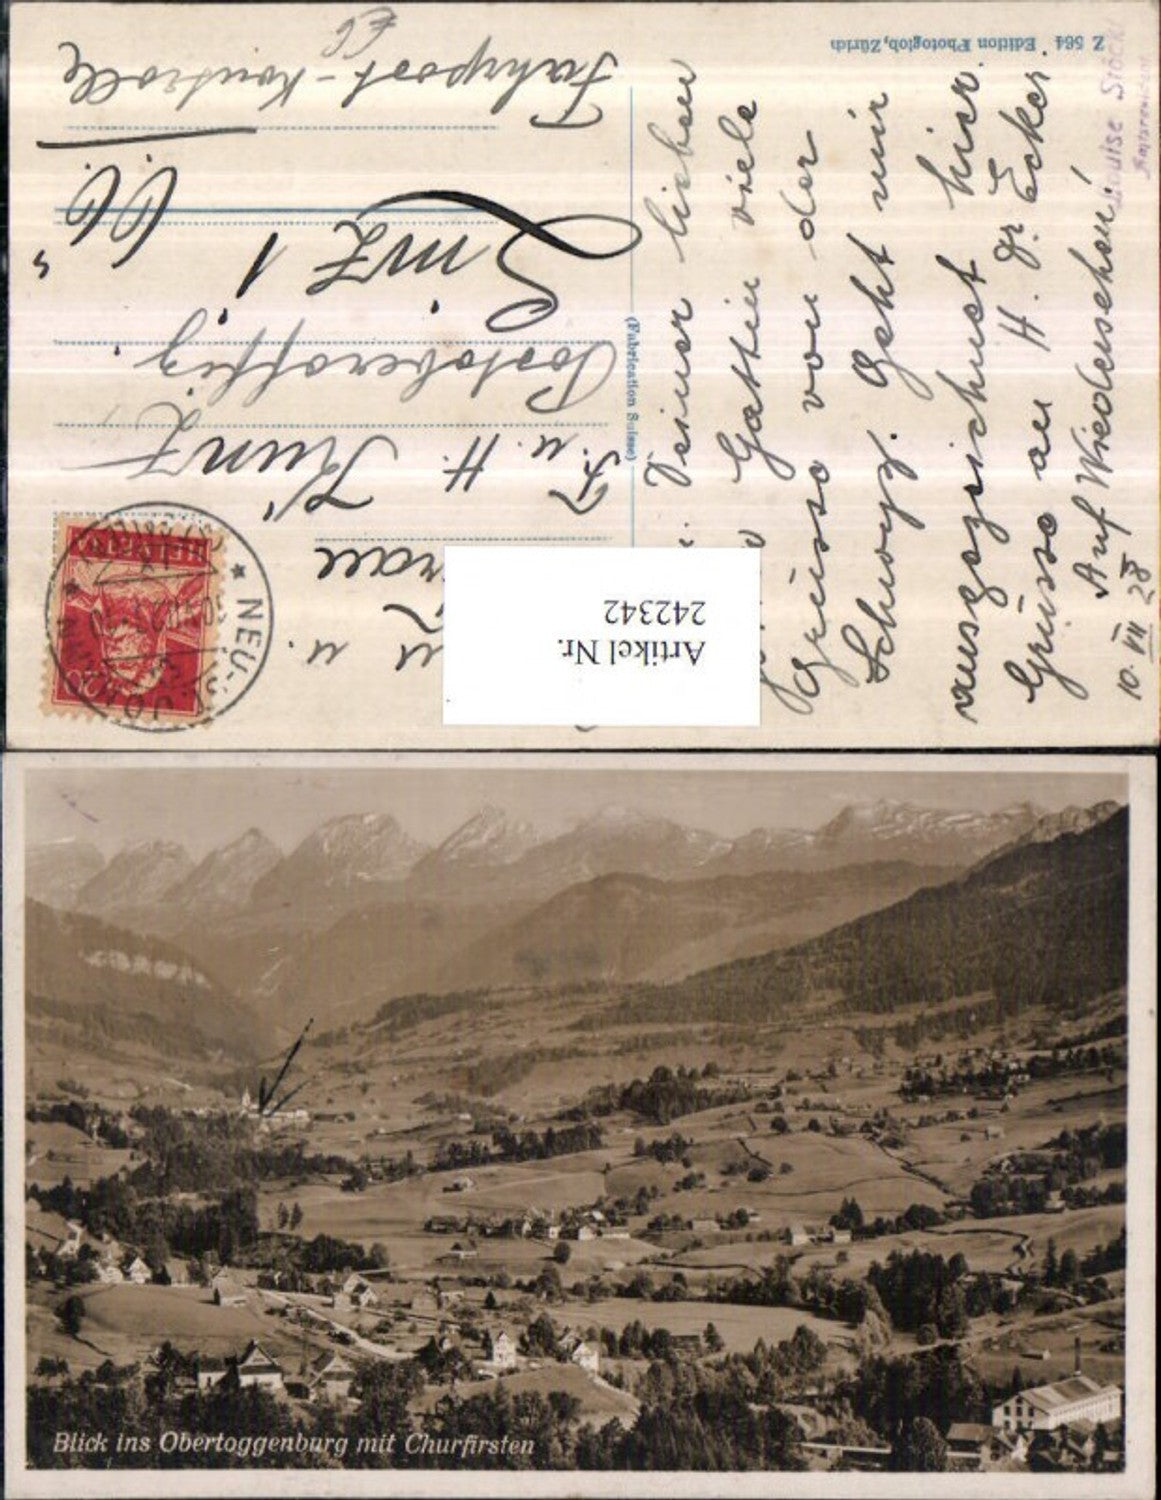 Z 564 Edition Photoglob, Zürich
(Fabrication Suisse)
Deiner lieben
Gattin viele
Grüsse von der
Schweiz. Geht mir
ausgezeichnet hier.
Grüsse an H. Dr. Ecker.
Auf Wiedersehen!
10. VII 28
u.
F. u. H. Kunz
Postoberoffiz.
Linz 1
Fahrpost-Kontrolle
HELVETIA
20
NEU-ST. JOHANN
Artikel Nr.
242342
Blick ins Obertoggenburg mit Churfirsten